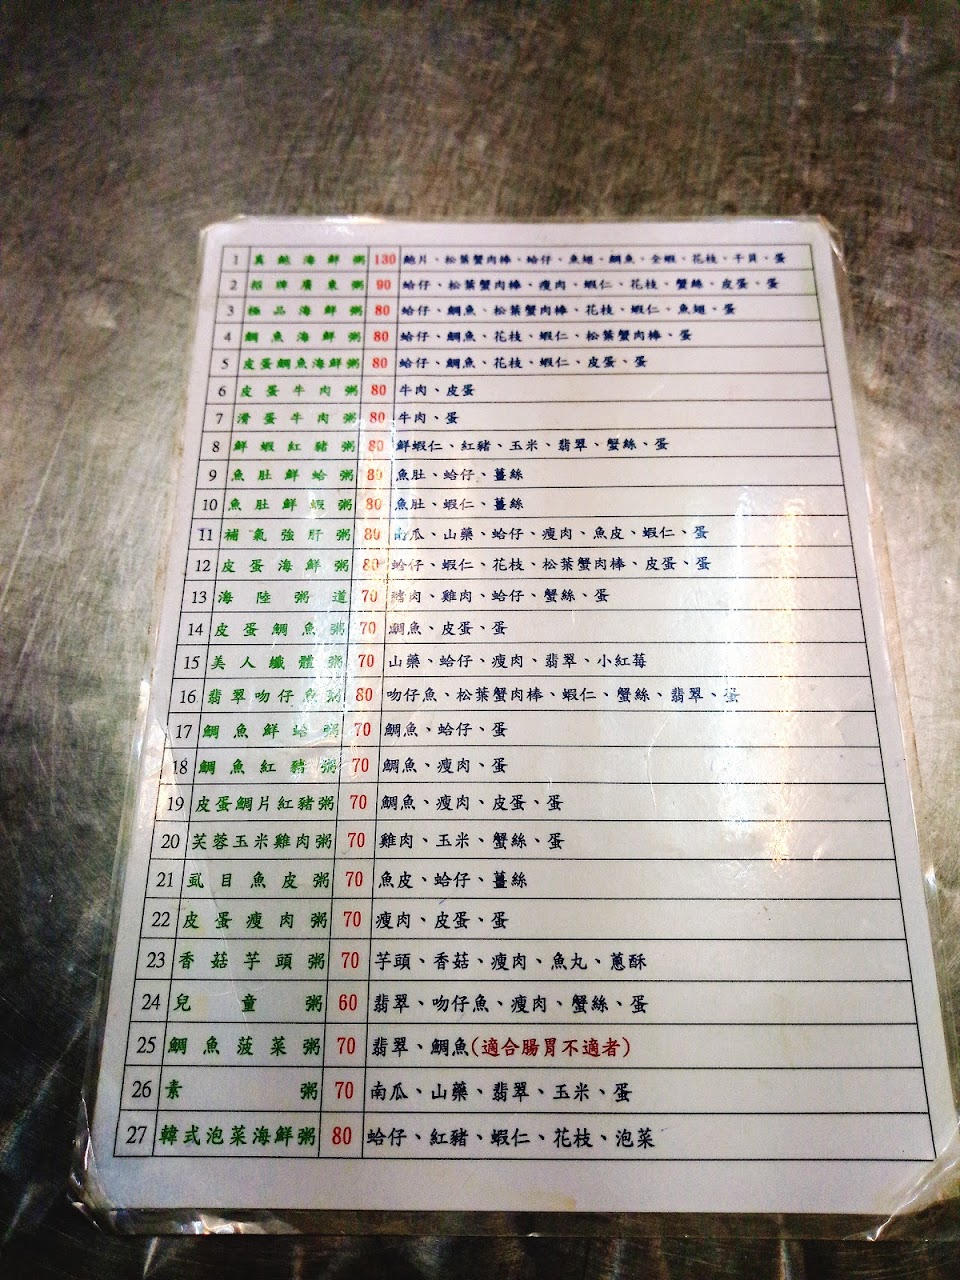 1 真鮑海鮮粥 130 鮑片、松葉蟹肉棒、蛤仔、魚翅、鯛魚、全蝦、花枝、干貝、蛋
2 招牌廣東粥 90 蛤仔、松葉蟹肉棒、瘦肉、蝦仁、花枝、蟹絲、皮蛋、蛋
3 極品海鮮粥 80 蛤仔、鯛魚、松葉蟹肉棒、花枝、蝦仁、魚翅、蛋
4 鯛魚海鮮粥 80 蛤仔、鯛魚、花枝、蝦仁、松葉蟹肉棒、蛋
5 皮蛋鯛魚海鮮粥 80 蛤仔、鯛魚、花枝、蝦仁、皮蛋、蛋
6 皮蛋牛肉粥 80 牛肉、皮蛋
7 滑蛋牛肉粥 80 牛肉、蛋
8 鮮蝦紅豬粥 80 鮮蝦仁、紅豬、玉米、翡翠、蟹絲、蛋
9 魚肚鮮蛤粥 80 魚肚、蛤仔、薑絲
10 魚肚鮮蝦粥 80 魚肚、蝦仁、薑絲
11 補氣強肝粥 80 南瓜、山藥、蛤仔、瘦肉、魚皮、蝦仁、蛋
12 皮蛋海鮮粥 80 蛤仔、蝦仁、花枝、松葉蟹肉棒、皮蛋、蛋
13 海陸粥道 70 豬肉、雞肉、蛤仔、蟹絲、蛋
14 皮蛋鯛魚粥 70 鯛魚、皮蛋、蛋
15 美人纖體粥 70 山藥、蛤仔、瘦肉、翡翠、小紅莓
16 翡翠吻仔魚粥 80 吻仔魚、松葉蟹肉棒、蝦仁、蟹絲、翡翠、蛋
17 鯛魚鮮蛤粥 70 鯛魚、蛤仔、蛋
18 鯛魚紅豬粥 70 鯛魚、瘦肉、蛋
19 皮蛋鯛片紅豬粥 70 鯛魚、瘦肉、皮蛋、蛋
20 芙蓉玉米雞肉粥 70 雞肉、玉米、蟹絲、蛋
21 虱目魚皮粥 70 魚皮、蛤仔、薑絲
22 皮蛋瘦肉粥 70 瘦肉、皮蛋、蛋
23 香菇芋頭粥 70 芋頭、香菇、瘦肉、魚丸、蔥酥
24 兒童粥 60 翡翠、吻仔魚、瘦肉、蟹絲、蛋
25 鯛魚菠菜粥 70 翡翠、鯛魚(適合腸胃不適者)
26 素粥 70 南瓜、山藥、翡翠、玉米、蛋
27 韓式泡菜海鮮粥 80 蛤仔、紅豬、蝦仁、花枝、泡菜